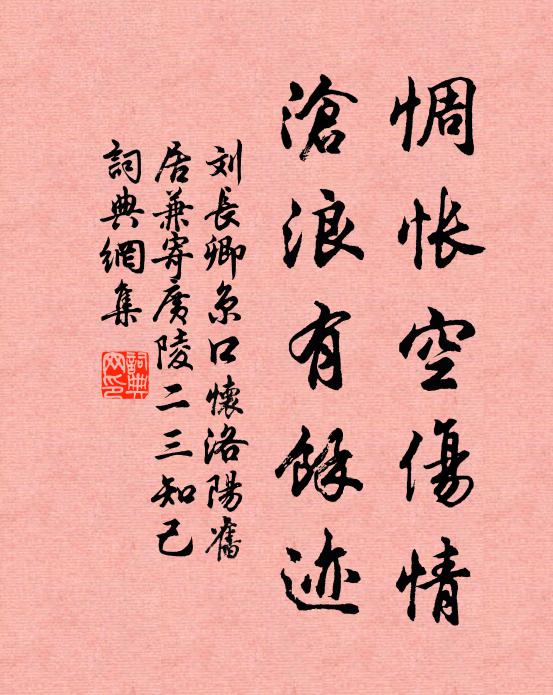 惆怅空傷情
滄浪有餘迹
刘長卿京口懷洛陽舊
居兼寄廣陵二三知己
詞典網集
詞典
网印